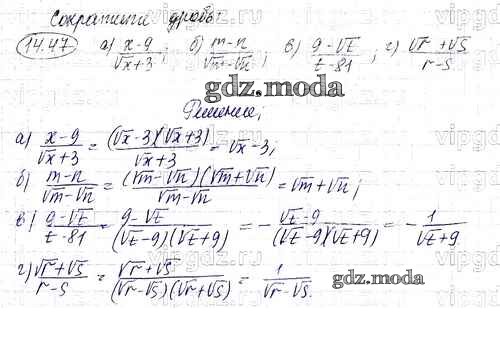 Сократить дробь:
14.47 а) x-9/√x+3; б) m-n/√m-√n; в) 9-√t/t-81; г) √r+√s/r-s
gdz.moda
Решение;
а) x-9/√x+3 = (√x-3)(√x+3)/√x+3 = √x-3;
б) m-n/√m-√n = (√m-√n)(√m+√n)/√m-√n = √m+√n;
в) 9-√t/t-81 = 9-√t/(√t-9)(√t+9) = - √t-9/(√t-9)(√t+9) = - 1/√t+9
г) √r+√s/r-s = √r+√s/(√r-√s)(√r+√s) = 1/√r-√s.
gdz.moda